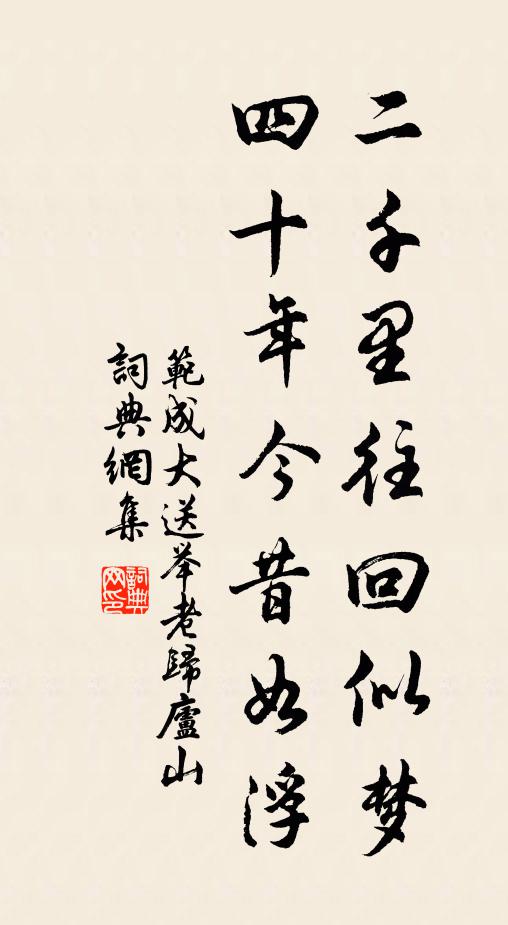 二千里往回似梦
四十年今昔如浮
範成大送举老歸廬山
詞典網集
詞典网印